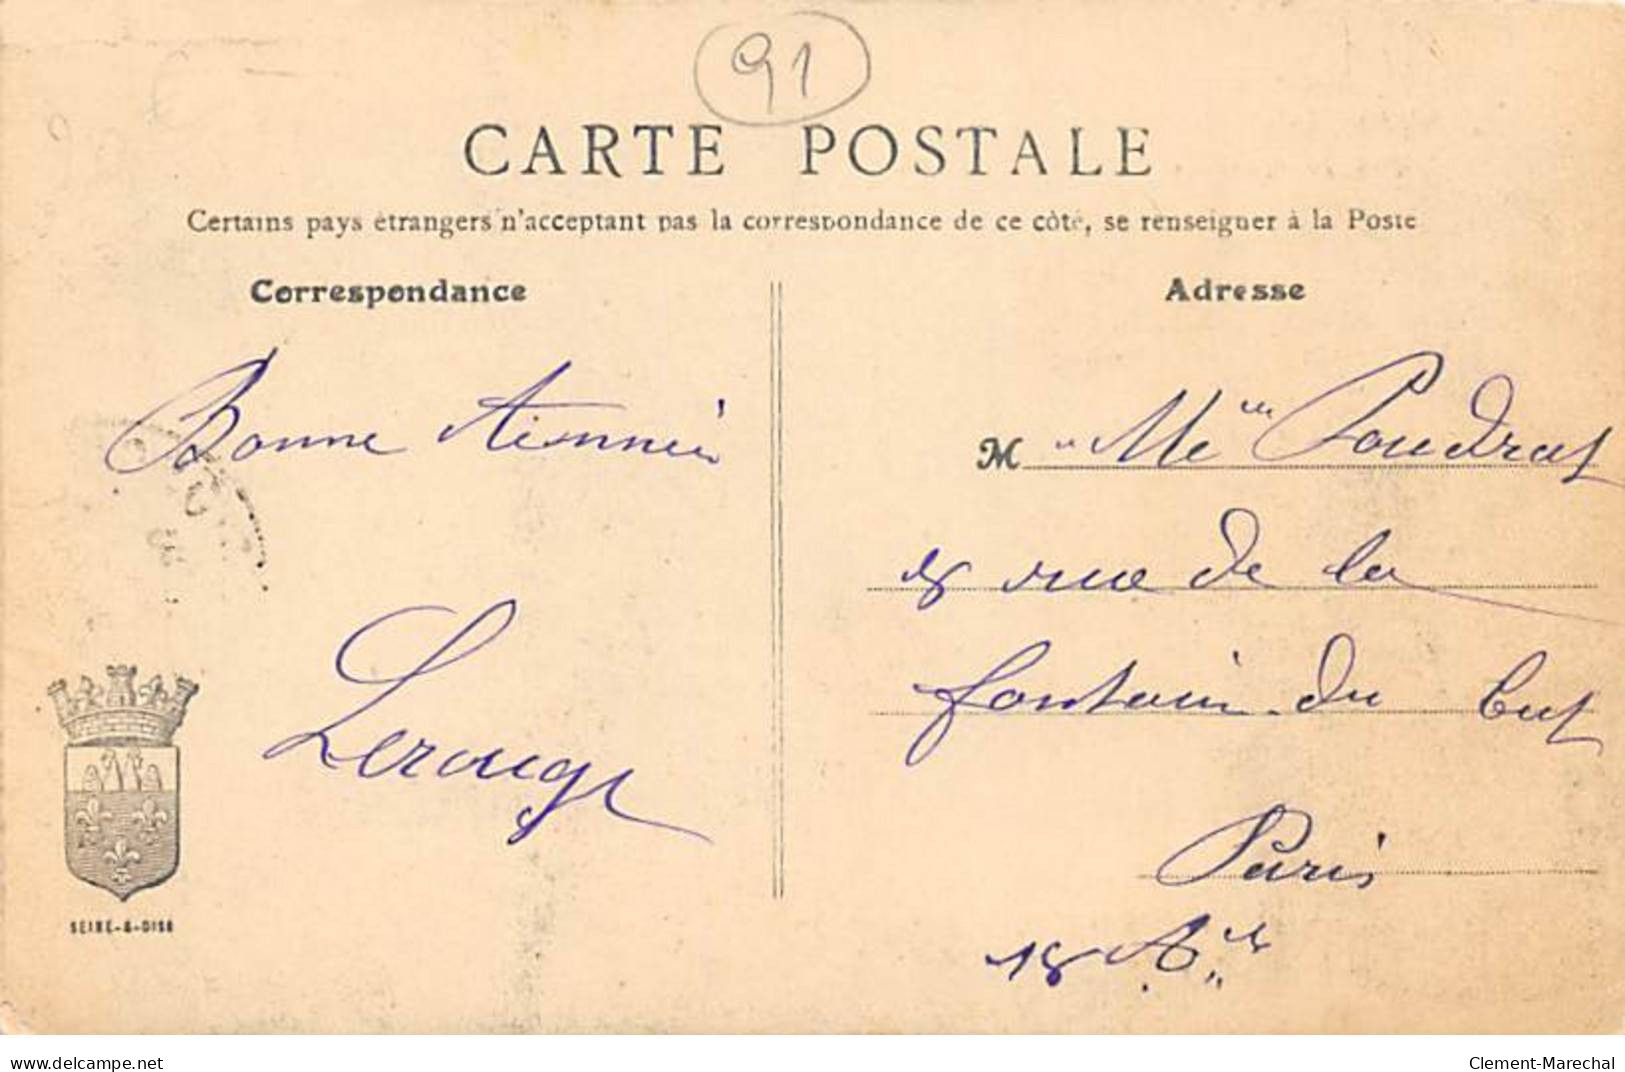 91
CARTE POSTALE
Certains pays étrangers n'acceptant pas la correspondance de ce côté, se renseigner à la Poste
Correspondance
Bonne
Lerouge
SEINE-&-OISE
Adresse
M Mlle Poudrat
8 rue de la
fontain du but
Paris
18 Ar
delcampe.net
Clement-Marechal